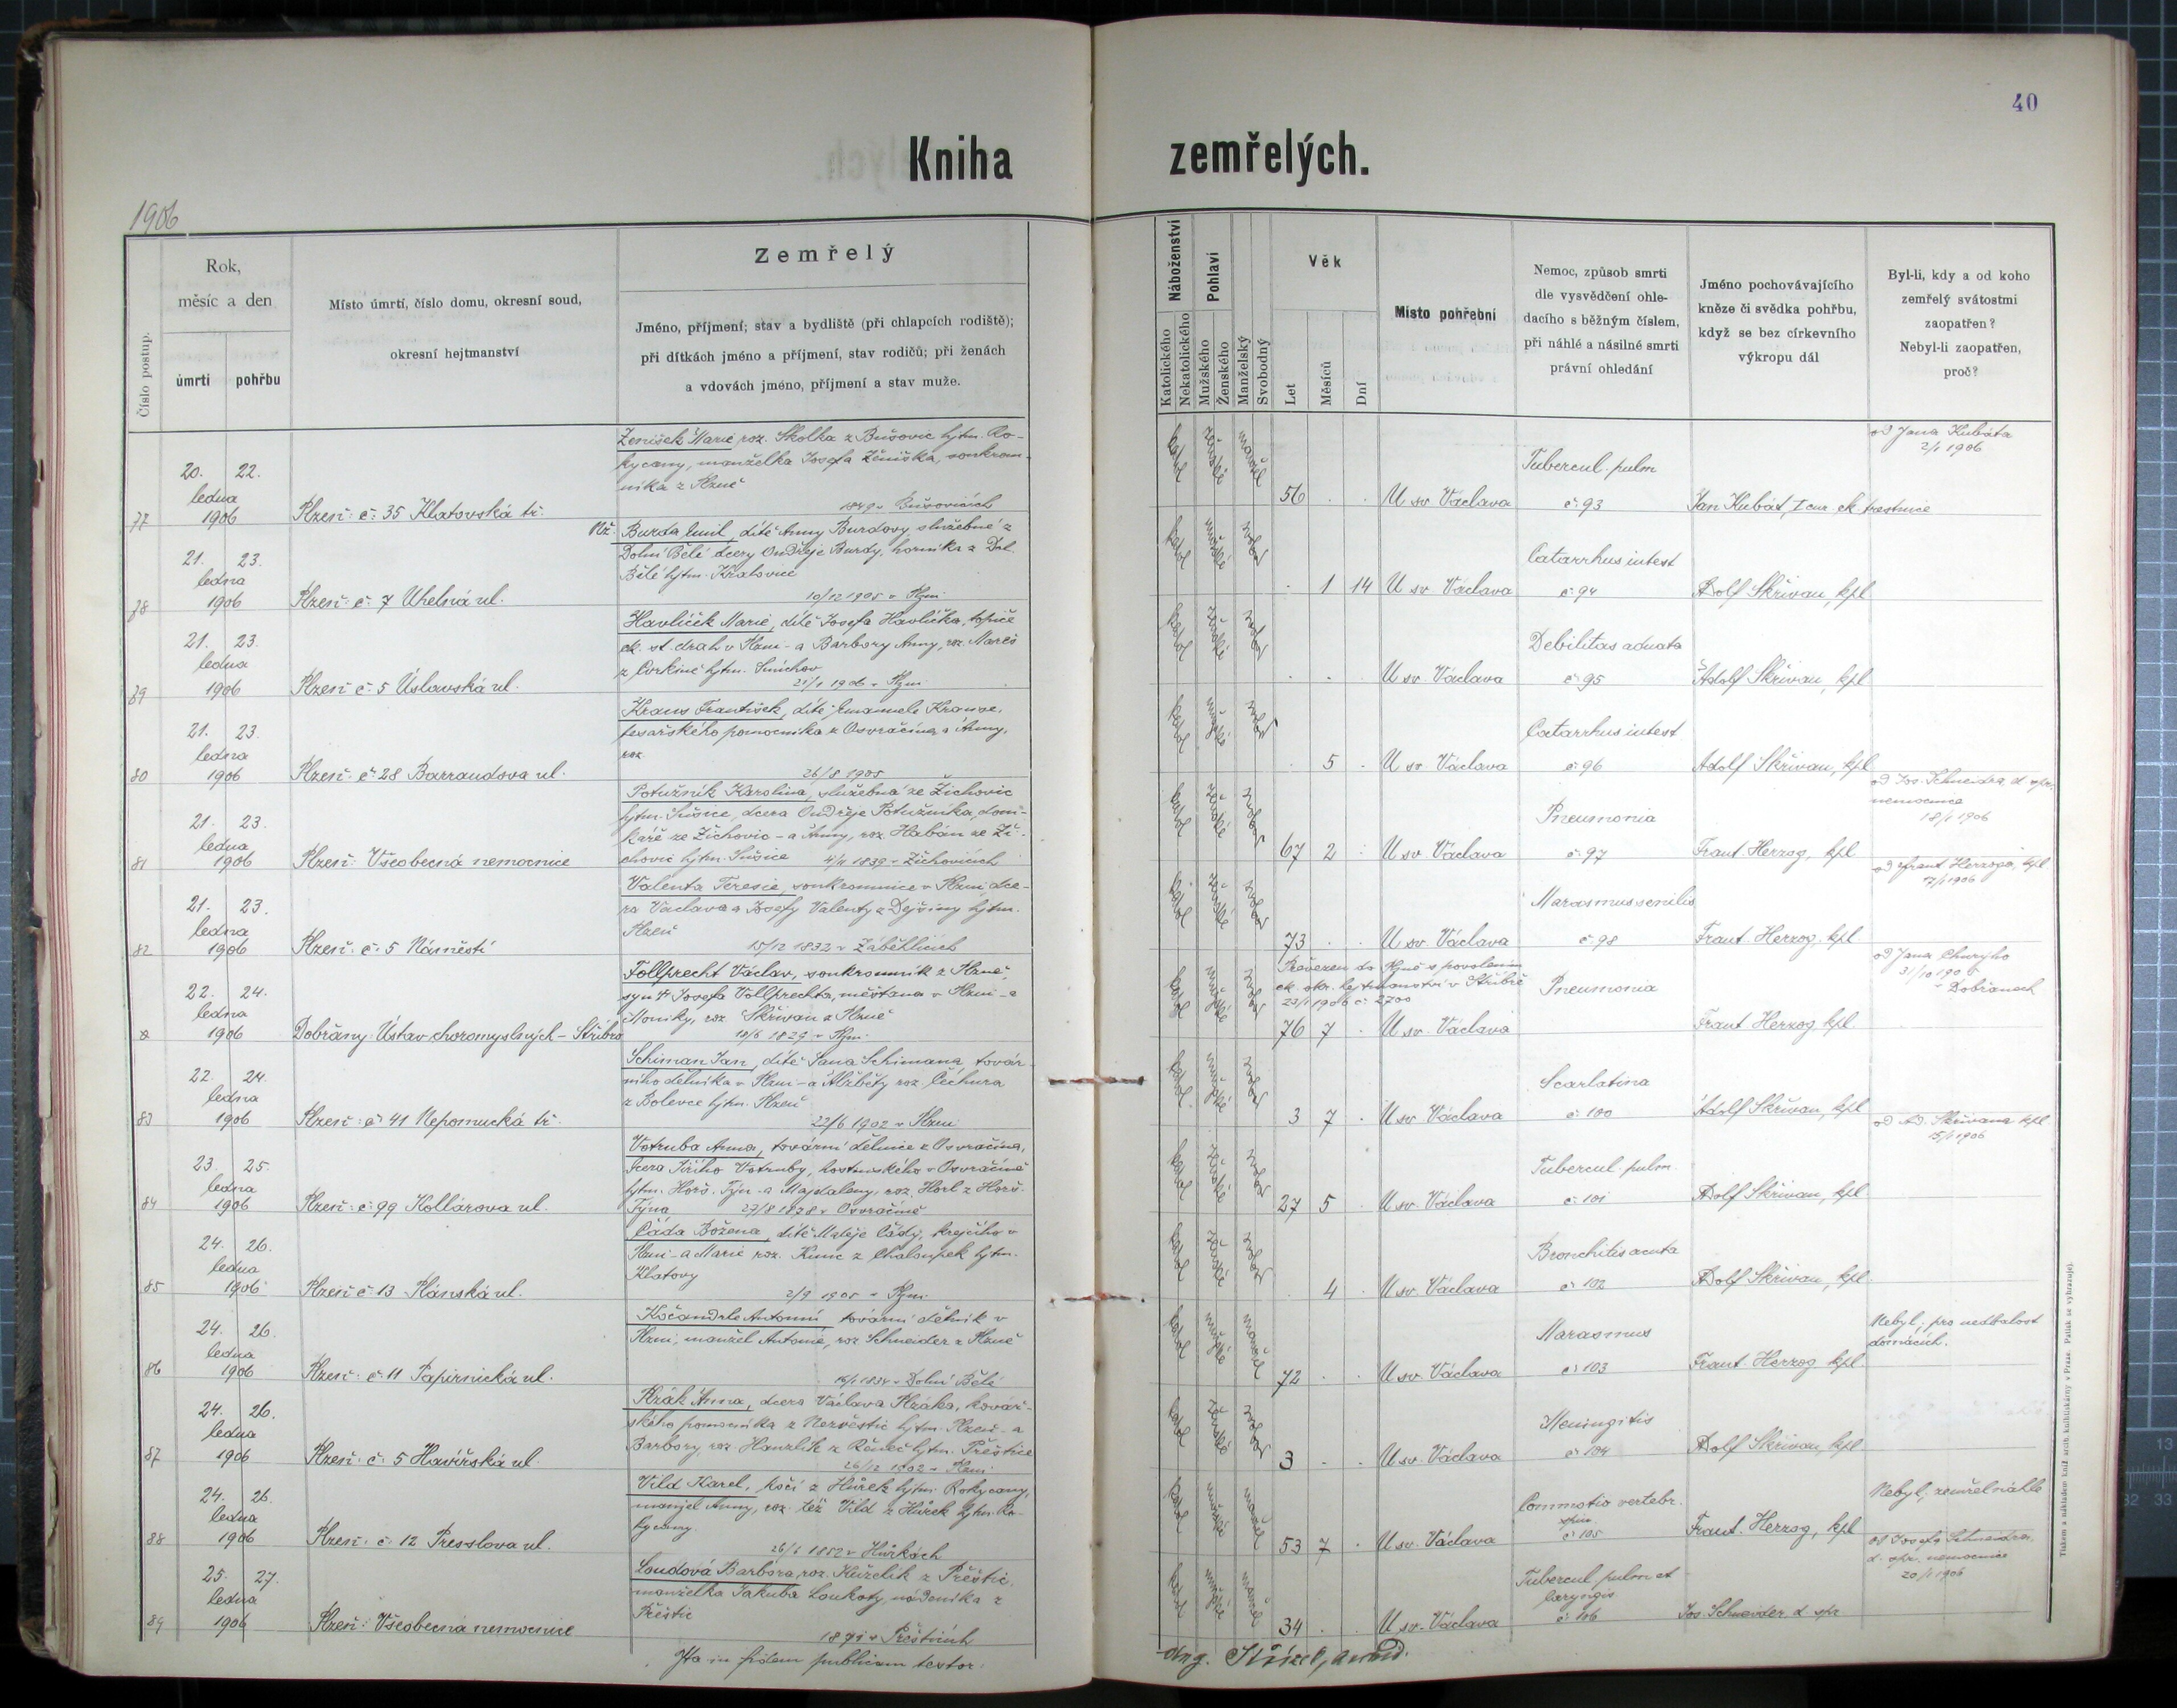 40
Kniha zemřelých.
1906
Číslo postup.
Rok,
měsíc a den
úmrtí
pohřbu
Místo úmrtí, číslo domu, okresní soud,
okresní hejtmanství
Zemřelý
Jméno, příjmení; stav a bydliště (při chlapcích rodiště);
při dítkách jméno a příjmení, stav rodičů; při ženách
a vdovách jméno, příjmení a stav muže.
Náboženství
Katolického
Nekatolického
Pohlaví
Mužského
Ženského
Manželský
Svobodný
Věk
Let
Měsíců
Dní
Místo pohřební
Nemoc, způsob smrti
dle vysvědčení ohle-
dacího s běžným číslem,
při náhlé a násilné smrti
právní ohledání
Jméno pochovávajícího
kněze či svědka pohřbu,
když se bez církevního
výkropu dál
Byl-li, kdy a od koho
zemřelý svátostmi
zaopatřen?
Nebyl-li zaopatřen,
proč?
77
20. 22.
ledna
1906
Plzeň: č: 35 Klatovská tř.
Ženíšek Marie roz. Skolka z Bušovic hjtm. Ro-
kycany, manželka Josefa Ženíška, soukrom-
níka z Plzně
1849 v Bušovicích
56
U sv. Václava
Tubercul. pulm
č: 93
Jan Kubát, I cur. ck trestnice
od Jana Kubáta
2/1 1906
78
21. 23.
ledna
1906
Plzeň: č: 7 Uhelná ul.
Nž. Burda Emil, dítě Anny Burdovy služebné z
Dolní Bělé dcery Ondřeje Burdy, horníka z Dol.
Bělé hjtm. Kralovice
10/12 1905 v Plzni
1 14
U sv. Václava
Catarrhus intest
č: 94
Adolf Skřivan, kpl
79
21. 23.
ledna
1906
Plzeň č: 5 Úslavská ul.
Havlíček Marie, dítě Josefa Havlíčka, topiče
ck. st. drah v Plzni - a Barbory Anny, roz. Mareš
z hjtm. Smíchov
21/1 1906 v Plzni
U sv. Václava
Debilitas adnata
č: 95
Adolf Skřivan, kpl
80
21. 23.
ledna
1906
Plzeň: č: 28 Barrandova ul.
Kraus František, dítě Emanuele Krause,
tesařského pomocníka z Osvračína a Anny,
roz.
26/8 1905
5
U sv. Václava
Catarrhus intest.
č: 96
Adolf Skřivan, kpl
81
21. 23.
ledna
1906
Plzeň: Všeobecná nemocnice
Potužník Karolina, služebná ze Žichovic
hjtm. Sušice, dcera Ondřeje Potužníka, dom-
káře ze Žichovic - a Anny, roz. Habán ze Ži-
chovic hjtm. Sušice 4/11 1839 v Žichovicích
67 2
U sv. Václava
Pneumonia
č: 97
Frant. Herzog, kpl
od Jos. Schneidra, d. spr.
nemocnice
18/1 1906
82
21. 23.
ledna
1906
Plzeň: č: 5 Náměstí
Valenta Teresie, soukromnice v Plzni dce-
ra Václava a Josefy Valenty z Dejšiny hjtm.
Plzeň
15/12 1832 v Záběhlicích
73
U sv. Václava
Marasmus senilis
č: 98
Frant. Herzog, kpl
od Frant Herzoga, kpl
17/1 1906
22. 24.
ledna
1906
Dobřany: Ústav choromyslných - Stříbro
Follprecht Václav, soukromník z Plzně,
syn † Josefa Vollprechta, měšťana v Plzni - a
Moniky, roz. Skřivan z Plzně
1829 v Plzni
Převezen do Plzně s povolením
ck. okr. hejtmanství v Stříbře
23/1 1906 č: 2700
76 7
U sv. Václava
Pneumonia
Frant Herzog kpl
od Jana
31/10 1905
v Dobřanech
83
22. 24.
ledna
1906
Plzeň: č: 41 Nepomucká tř.
Schiman Jan, dítě Jana Schimana, továr-
ního dělníka v Plzni - a Alžběty roz Čechura
z Bolevce hjtm. Plzeň
22/6 1902 v Plzni
3 7
U sv. Václava
Scarlatina
č: 100
Adolf Skřivan, kpl
84
23. 25.
ledna
1906
Plzeň: č: 99 Kollárova ul.
Votruba Anna, tovární dělnice z Osvračína,
dcera Jiřího Votruby, hostinského v Osvračíně
hjtm. Horš. Týn - a Majdaleny, roz. Horl z Horš.
Týna 27/8 1878 v Osvračíně
27 5
U sv. Václava
Tubercul. pulm.
č: 101
Adolf Skřivan, kpl
od Ad. Skřivana kpl
15/1 1906
85
24. 26.
ledna
1906
Plzeň č: 13 Plánská ul.
Čáda Božena, dítě Matěje Čády, krejčího v
Plzni - a Marie roz. Kunc z Chaloupek hjtm.
Klatovy
2/9 1905 v Plzni
4
U sv. Václava
Bronchitis acuta
č: 102
Adolf Skřivan, kpl
86
24. 26.
ledna
1906
Plzeň: č: 11 Papírnická ul.
Kočandrle Antonín tovární dělník v
Plzni, manžel Antonie, roz Schneider z Plzně
1834 v Dolní Bělé
72
U sv. Václava
Marasmus
č: 103
Frant. Herzog kpl
Nebyl; pro nedbalost
domácích.
87
24. 26.
ledna
1906
Plzeň: č: 5 Havířská ul.
Plzák Anna, dcera Václava Plzáka, kovář-
ského pomocníka z Nezvěstic hjtm. Plzeň - a
Barbory, roz. Hanzlík z hjtm. Přeštice
26/12 1902 v Plzni
3
U sv. Václava
Meningitis
č: 104
Adolf Skřivan, kpl
88
24. 26.
ledna
1906
Plzeň: č: 12 Presslova ul.
Vild Karel, kočí z Hůrek hjtm. Rokycany,
manžel Anny, roz. též Vild z Hůrek hjtm. Ro-
kycany.
1852 v Hůrkách
53 7
U sv. Václava
Commotio vertebr.
spin.
č: 105
Frant. Herzog, kpl
Nebyl; zemřel náhle
89
25. 27.
ledna
1906
Plzeň: Všeobecná nemocnice
Loudová Barbora, roz. Kuželík z Přeštic,
manželka Jakuba Loukoty, nádeníka z
Přeštic
1871 v Přešticích
34
U sv. Václava
Tubercul pulm et
laryngis
č: 106
Jos. Schneider, d. spr
od Josefa Schneidra,
d. spr. nemocnice
20/1 1906
Ita in fidem publicam testor: